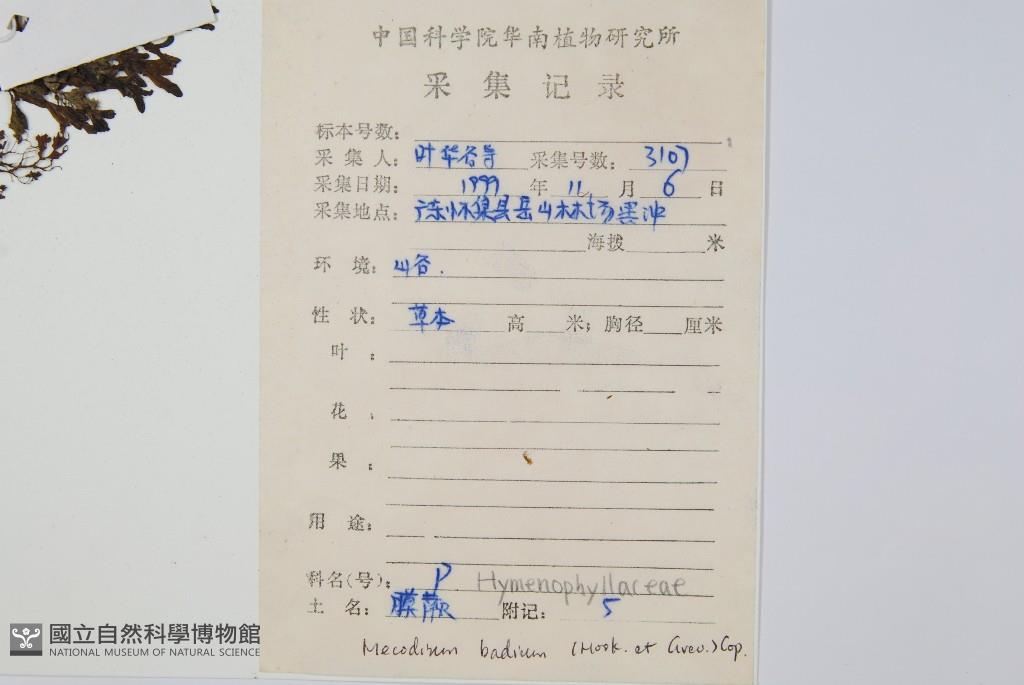 中国科学院华南植物研究所
采集记录
标本号数:
采集人: 叶华谷等 采集号数: 3107
采集日期: 1999 年 11 月 6 日
采集地点: 广东怀集县岳山林场黑冲
海拨 米
环境: 山谷.
性状: 草本 高 米; 胸径 厘米
叶:
花:
果:
用途:
科名(号): P. Hymenophyllaceae
土名: 膜蕨 附记: 5
Mecodium badium (Hook. et Grev.) Cop.
國立自然科學博物館
NATIONAL MUSEUM OF NATURAL SCIENCE